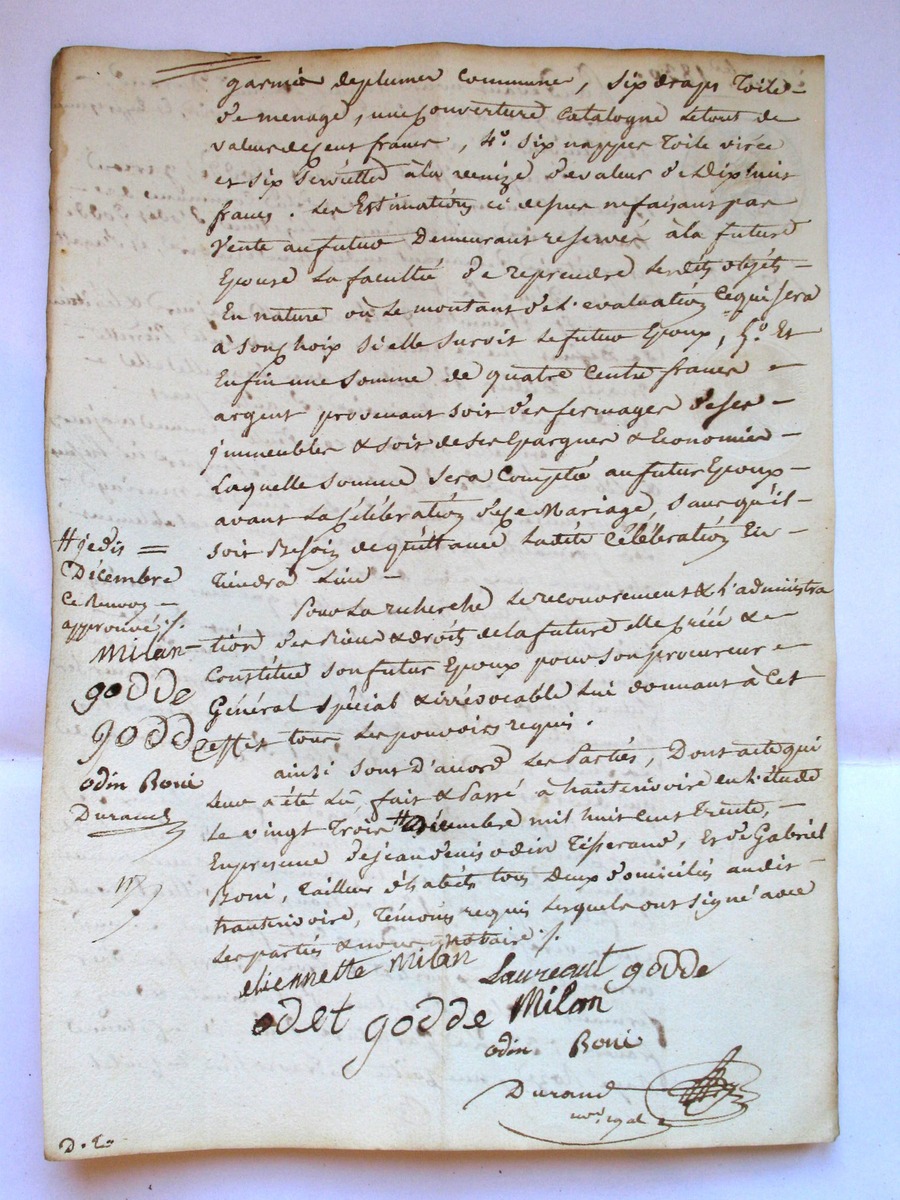 garnie de plumes Commune, Six draps Toile
de menage, une Couverture Catalogne Le tout de
valeur de Cent francs, 4.° Six nappes Toile virée
et Six Serviettes à la venize de valeur de dix huit
francs. Les Estimations ci dessus ne faisant pas
Vente au futur Demeurant reservé à la future
Epouse La faculté de reprendre Lesdits objets
En nature ou Le montant de L'evaluation Ce qui sera
à Son Choix Si elle Survit Le futur Epoux, 5.° Et
Enfin une Somme de quatre Cents francs
argent provenant soit des fermages de ses
immeubles & soit de Ses Epargnes & Economies
Laquelle Somme Sera Comptée au futur Epoux
avant La Célébration de Ce Mariage, Sans qu'il
soit Besoin de quittance Ladite Célébration En
Tiendra Lieu
Pour La recherche Le recouvrement & L'administra
tion des Biens & droits de la future Elle Créé &
Constitue Son futur Epoux pour Son procureur
Général Spécial & irrévocable Lui donnant à Cet
effet tous Les pouvoirs requis.
ainsi Sont D'accord Les Parties, Dont acte qui
Leur a été Lu, fait & Passé à hauterivoire en L'étude
Le vingt Trois # Décembre mil huit Cent Trente,
En presence de jean denis odin Tisserand, Et de Gabriel
Boni, Tailleur d'habits tous Deux Domiciliés audit
hauterivoire, Témoins requis Lesquels ont Signé avec
Les parties & nous notaire
# je dis
Décembre
Ce Renvoy
approuvé
Milan
godde
godd
odin Boni
Durand
etiennette Milan
Laureant godde
odet godde Milan
odin Boni
Durand
D. L.